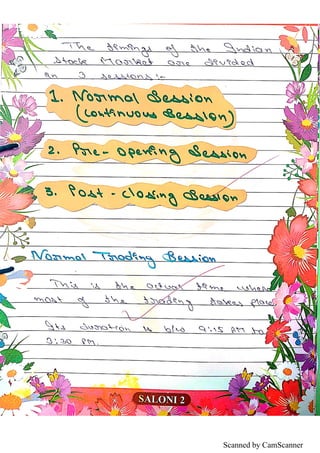 The timings of the Indian
Stock Market are divided
in 3 sessions :-
1. Normal Session
(continuous Session)
2. Pre-opening Session
3. Post-closing Session
Normal Trading Session
This is the actual time where
most of the trading takes place
Its duration is b/w 9:15 AM to
3:30 PM.
SALONI 2
Scanned by CamScanner